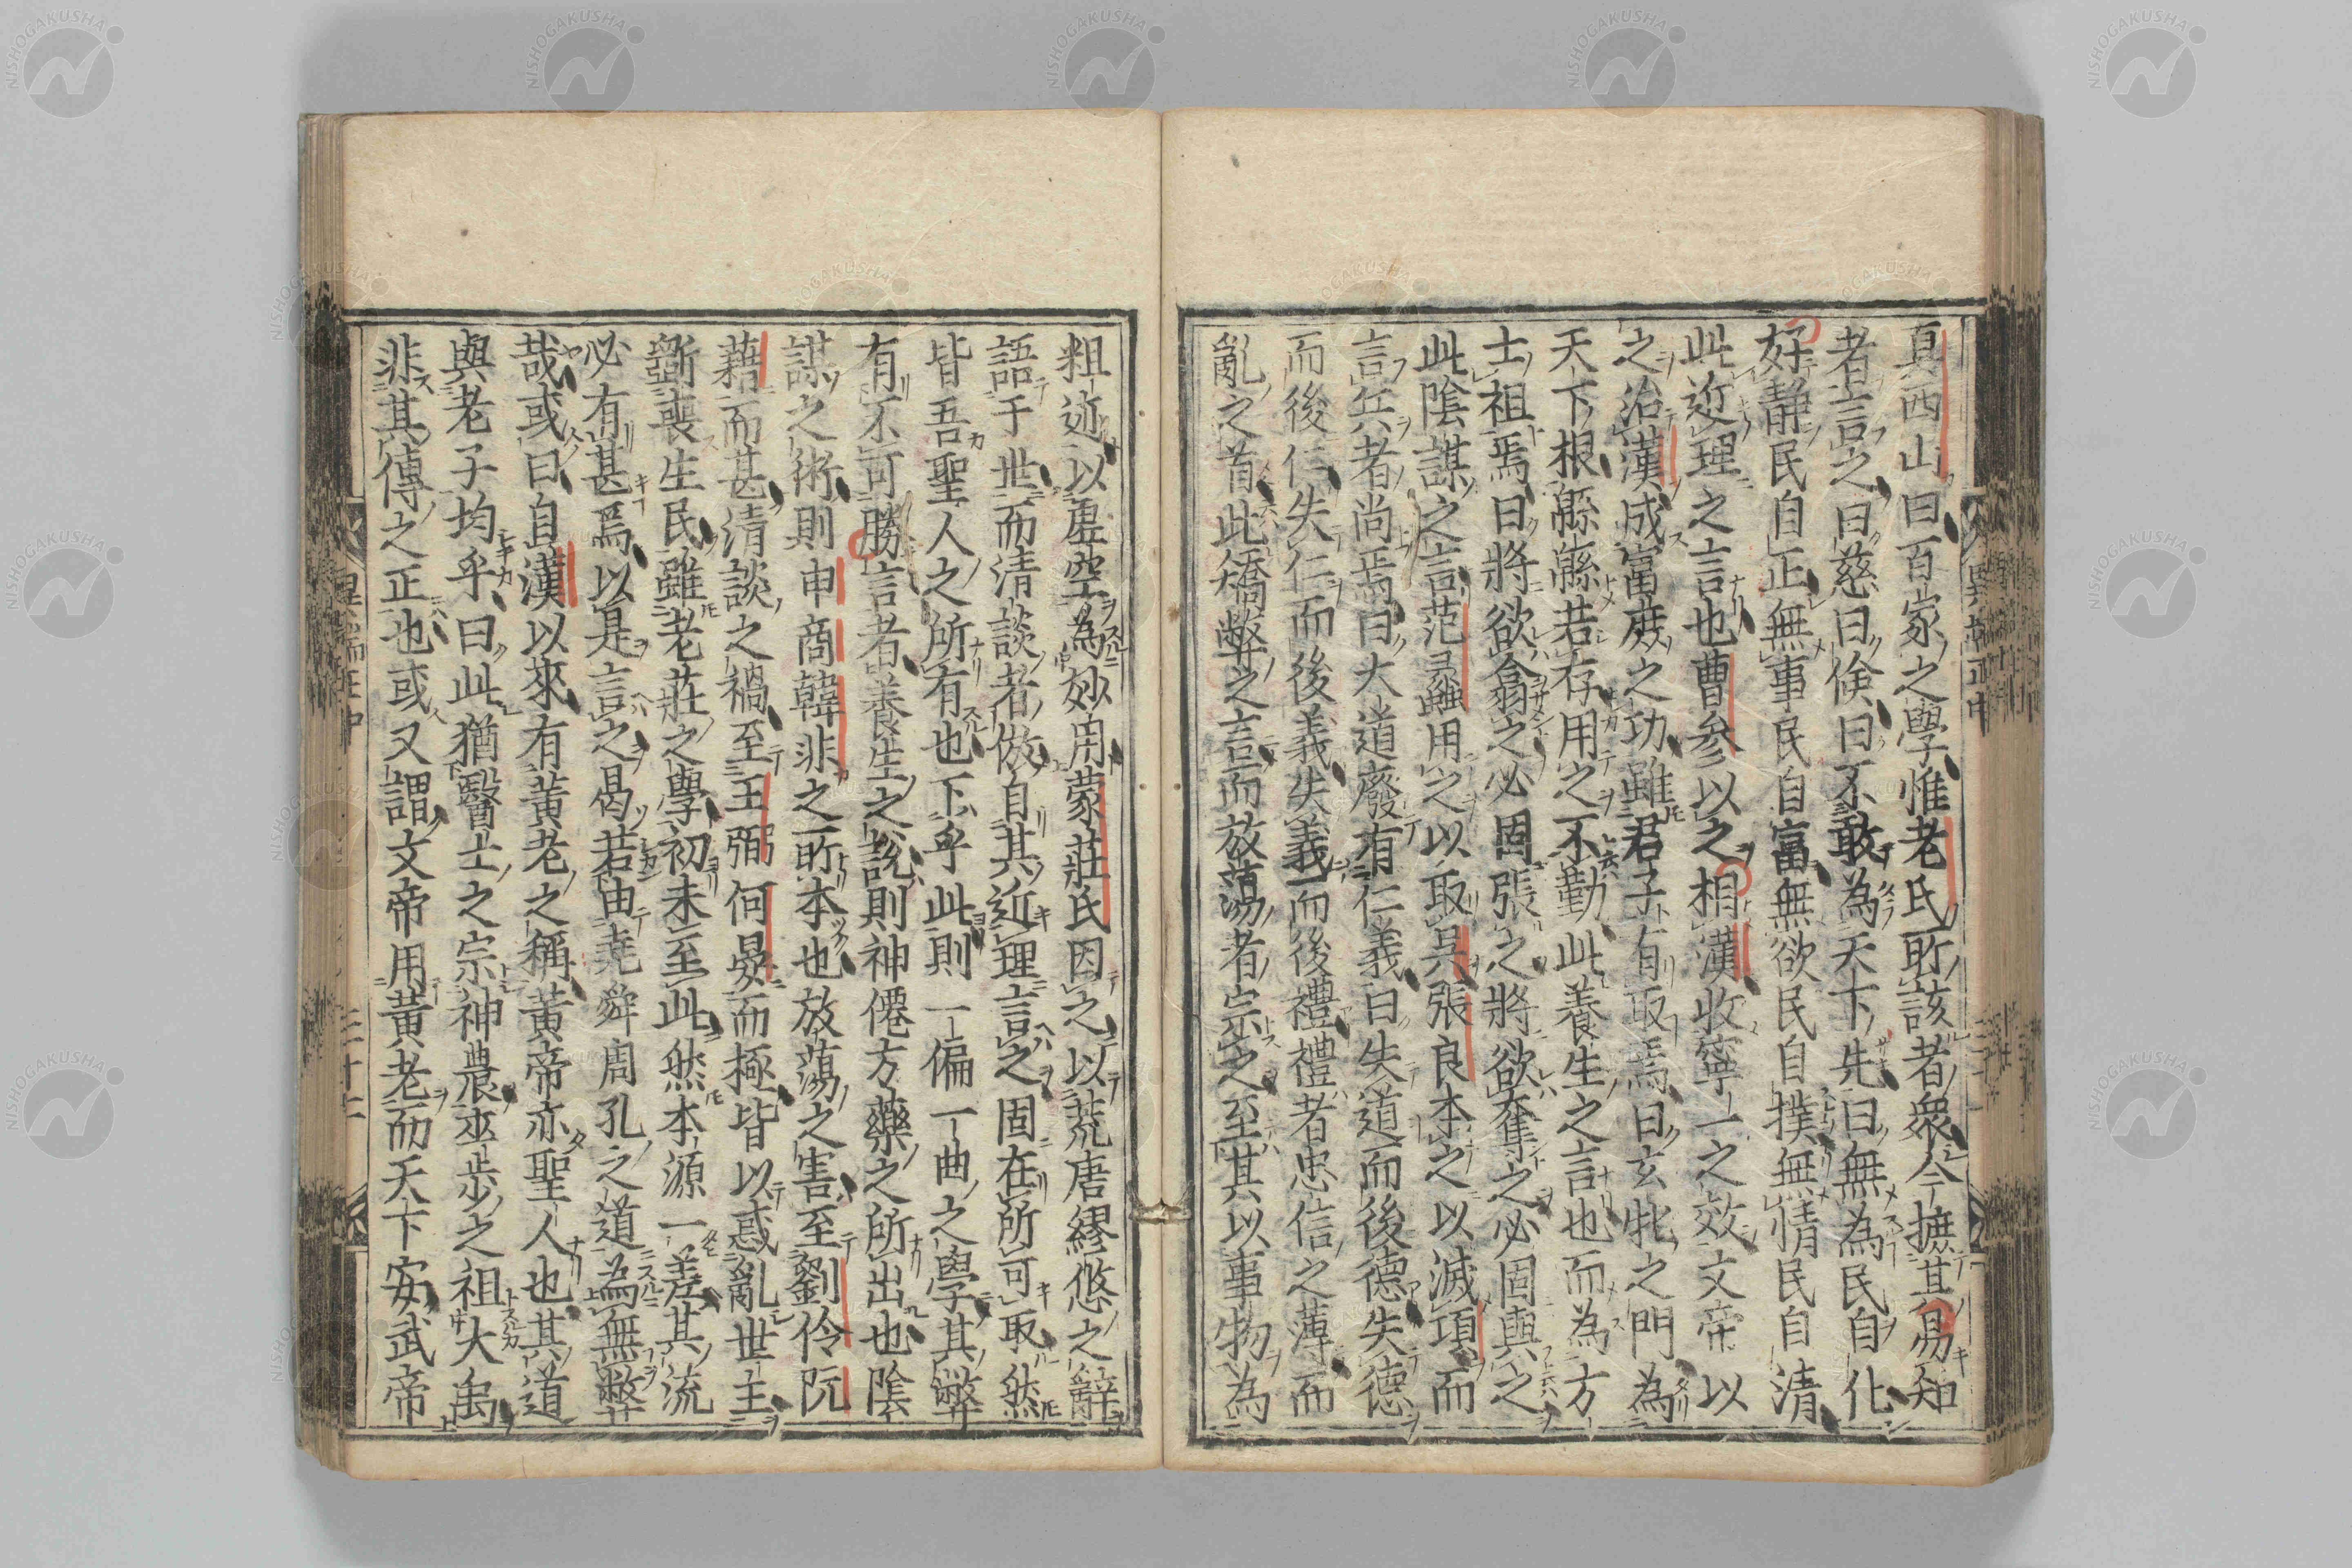 真西山曰百家之學惟老氏所該者衆今摭其易知
者言之曰慈曰儉曰不敢為天下先曰無為民自化
好靜民自正無事民自富無欲民自撲無情民自清
此近理之言也曹參以之相漢收寧一之效文帝以
之治漢成富庶之功雖君子有取焉曰玄牝之門為
天下根綿綿若存用之不勤此養生之言也而為方
士祖焉曰將欲翕之必固張之將欲奪之必固與之
此陰謀之言范蠡用之以取吳張良本之以滅項而
言兵者尚焉曰大道廢有仁義曰失道而後德失德
而後仁失仁而後義失義而後禮禮者忠信之薄而
亂之首此矯弊之言而放蕩者宗之至其以事物為
粗迹以虛空為妙用蒙莊氏因之以荒唐繆悠之辭
語于世而清談者倣自其近理言之固在所可取然
皆吾聖人之所有也下乎此則一偏一曲之學其弊
有不可勝言者養生之說則神僊方藥之所出也陰
謀之術則申商韓非之所本也放蕩之害至劉伶阮
藉而甚清談之禍至王弼何晏而極皆以惑亂世主
斲喪生民雖老莊之學初未至此然本源一差其流
必有甚焉以是言之曷若由堯舜周孔之道為無弊
哉或曰自漢以來有黃老之稱黃帝亦聖人也其道
與老子均乎曰此猶醫士之宗神農巫步之祖大禹
非其傳之正也或又謂文帝用黃老而天下安武帝
異端正中
三十二